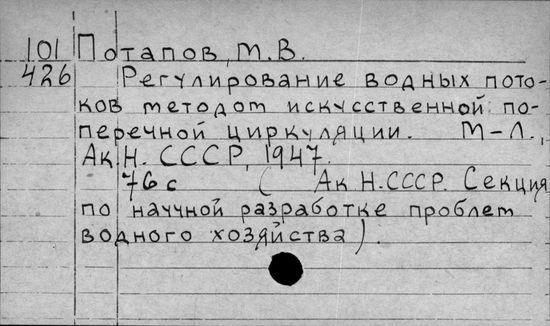 101 Потапов, М.В.
426 Регулирование водных пото-
ков методом искусственной по-
перечной циркуляции. М-Л.,
Ак.Н. СССР, 1947.
76 с ( Ак Н.СССР. Секция
по научной разработке проблем
водного хозяйства).